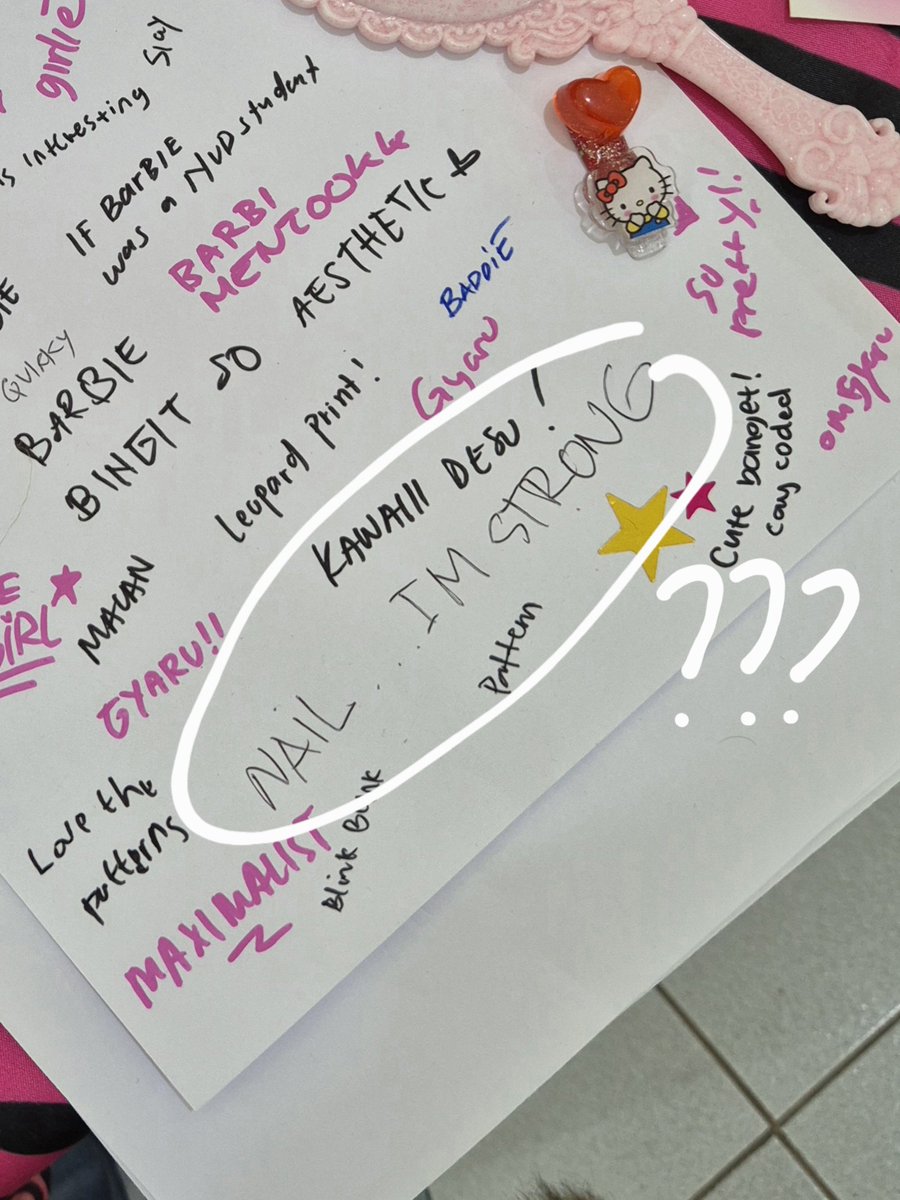 girlie
is interesting slay
IF BarBIE
was a NUD student
BARBI
MENTOOKK
QUIRKY
BARBIE
BINGIT SO AESTHETIC
BADDIE
SO
pretty!
Leopard print!
Gyaru
omgyaru
KAWAIII DESU!
Cute banget!
cay coded
GIRL
MACAN
GYARU!!
NAIL ... IM STRONG
Pattern
???
Love the
patterns
MAXIMALIST
Blink Blink